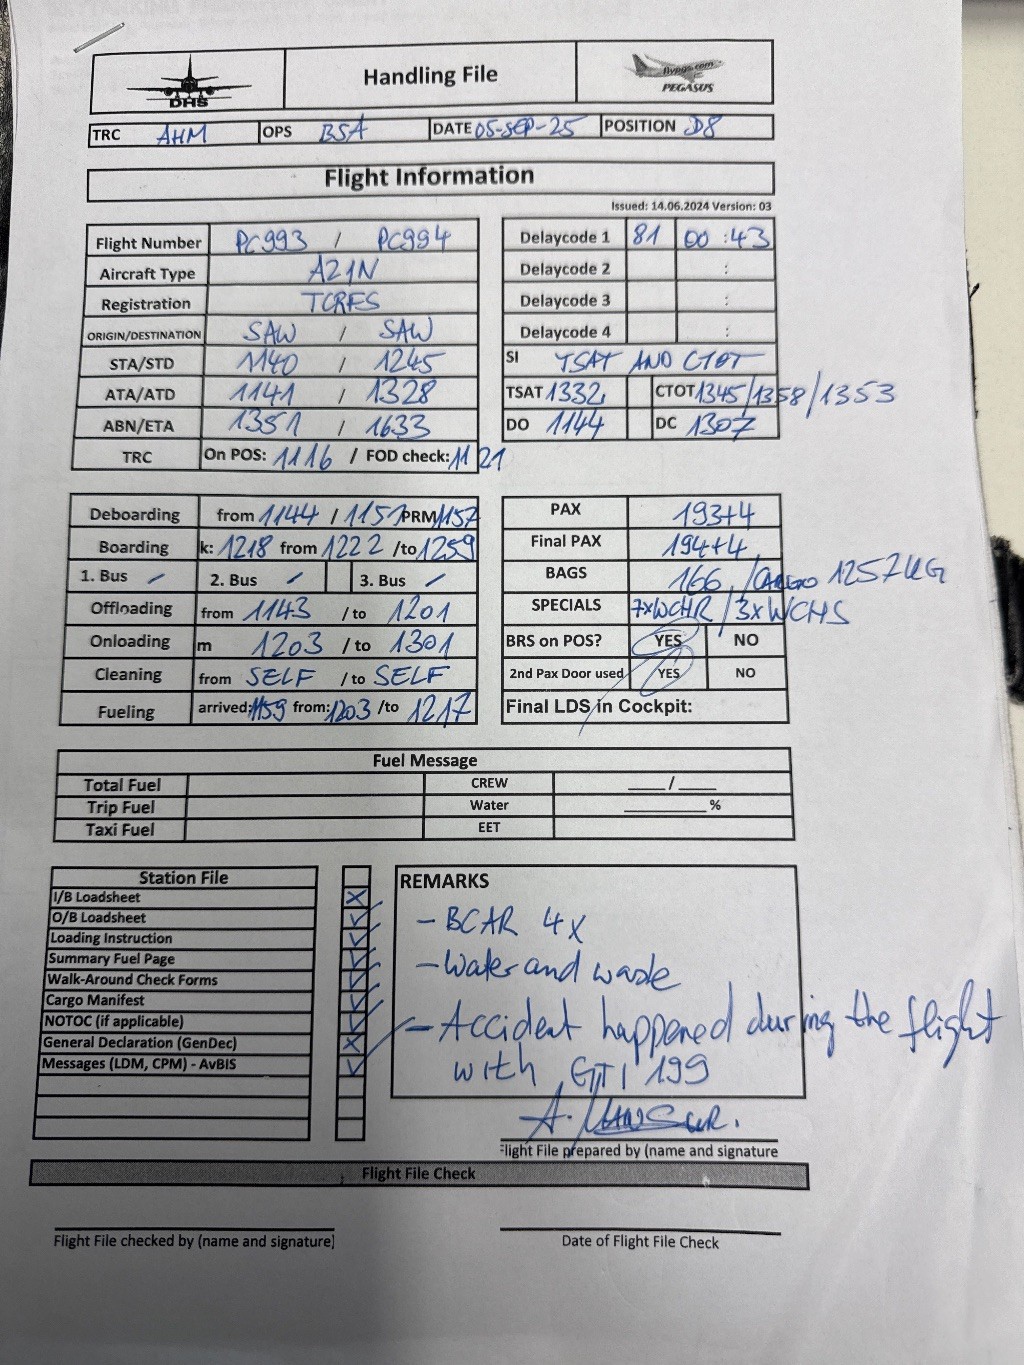 DHS
Handling File
flypgs.com
PEGASUS
TRC AHM OPS BSA DATE 05-SEP-25 POSITION D8
Flight Information
Issued: 14.06.2024 Version: 03
Flight Number PC993 / PC994
Aircraft Type A21N
Registration TCRFS
ORIGIN/DESTINATION SAW / SAW
STA/STD 1140 / 1245
ATA/ATD 1141 / 1328
ABN/ETA 1351 / 1633
TRC On POS: 1116 / FOD check: 1121
Delaycode 1 81 00 :43
Delaycode 2 :
Delaycode 3 :
Delaycode 4 :
SI TSAT AND CTOT
TSAT 1332 CTOT 1345/1358/1353
DO 1144 DC 1307
Deboarding from 1144 / 1151 PRM 1157
Boarding k: 1218 from 1222 /to 1259
1. Bus 2. Bus 3. Bus
Offloading from 1143 /to 1201
Onloading m 1203 /to 1301
Cleaning from SELF /to SELF
Fueling arrived: 1159 from: 1203 /to 1217
PAX 193+4
Final PAX 194+4
BAGS 166 / CARGO 1257KG
SPECIALS 7xWCHR / 3xWCHS
BRS on POS? YES NO
2nd Pax Door used YES NO
Final LDS in Cockpit:
Fuel Message
Total Fuel CREW ____/____
Trip Fuel Water ________%
Taxi Fuel EET
Station File
I/B Loadsheet
O/B Loadsheet
Loading Instruction
Summary Fuel Page
Walk-Around Check Forms
Cargo Manifest
NOTOC (if applicable)
General Declaration (GenDec)
Messages (LDM, CPM) - AvBIS
REMARKS
- BCAR 4x
- Water and waste
- Accident happened during the flight
with GTI 199
Flight File prepared by (name and signature
Flight File Check
Flight File checked by (name and signature)
Date of Flight File Check